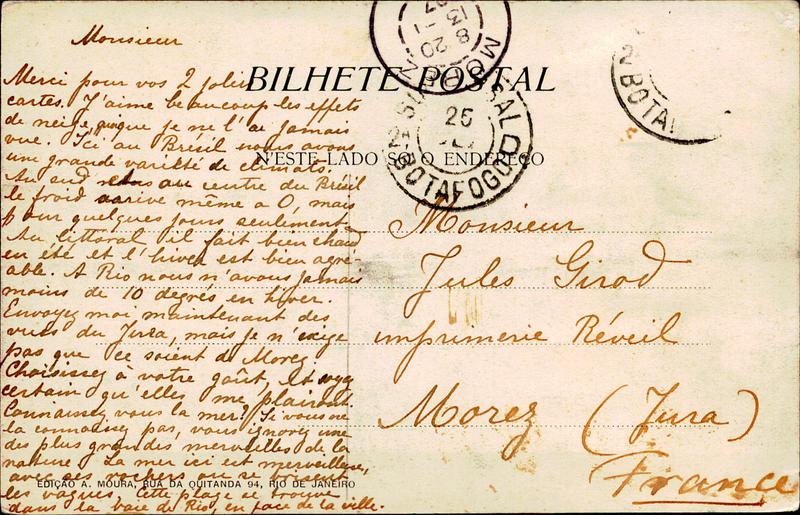 Monsieur
Merci pour vos 2 jolies
cartes. J'aime beaucoup les effets
de neige, quoique je ne l'ai jamais
vue. Ici au Brésil nous avons
une grande variété de climats.
Au sud au centre du Brésil
le froid arrive même à 0, mais
pour quelques jours seulement.
Au littoral il fait bien chaud
en été et l'hiver est bien agré-
able. A Rio nous n'avons jamais
moins de 10 degrés en hiver.
Envoyez moi maintenant des
vues du Jura, mais je n'exige
pas que ce soient de Morez
Choisissez à votre goût, et soyez
certain qu'elles me plairont.
Connaissez vous la mer? Si vous ne
la connaissez pas, vous ignorez une
des plus grandes merveilles de la
nature. La mer ici est merveilleuse,
avec ses rochers où se
les vagues. Cette plage se trouve
dans la baie de Rio, en face de la ville.
EDIÇÃO A. MOURA, RUA DA QUITANDA 94, RIO DE JANEIRO
BILHETE POSTAL
N'ESTE LADO SO O ENDEREÇO
8-20
13-1
07
MOREZ
25
BOTAFOGO
BOTA
Monsieur
Jules Girod
imprimerie Réveil
Morez (Jura)
France